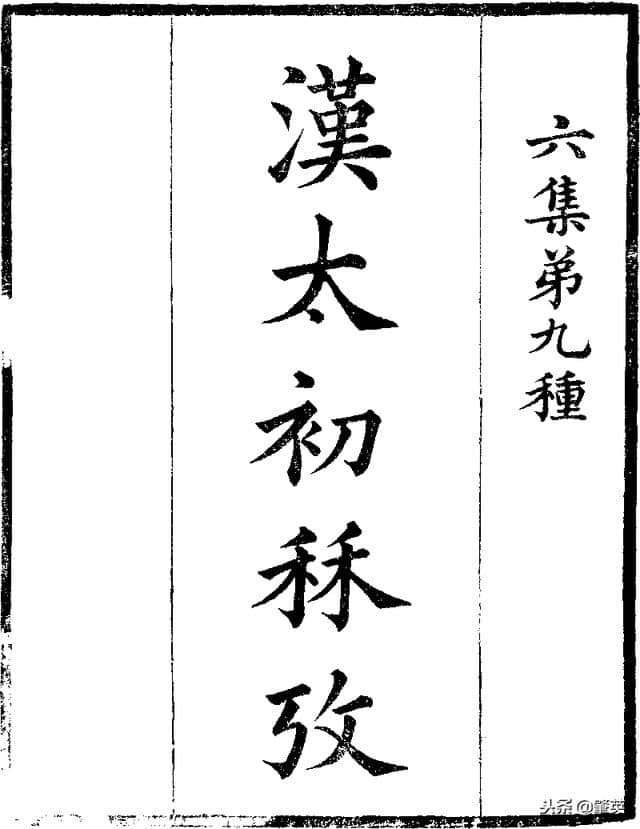 六集弟九種
漢太初秝攷
头条@肇英